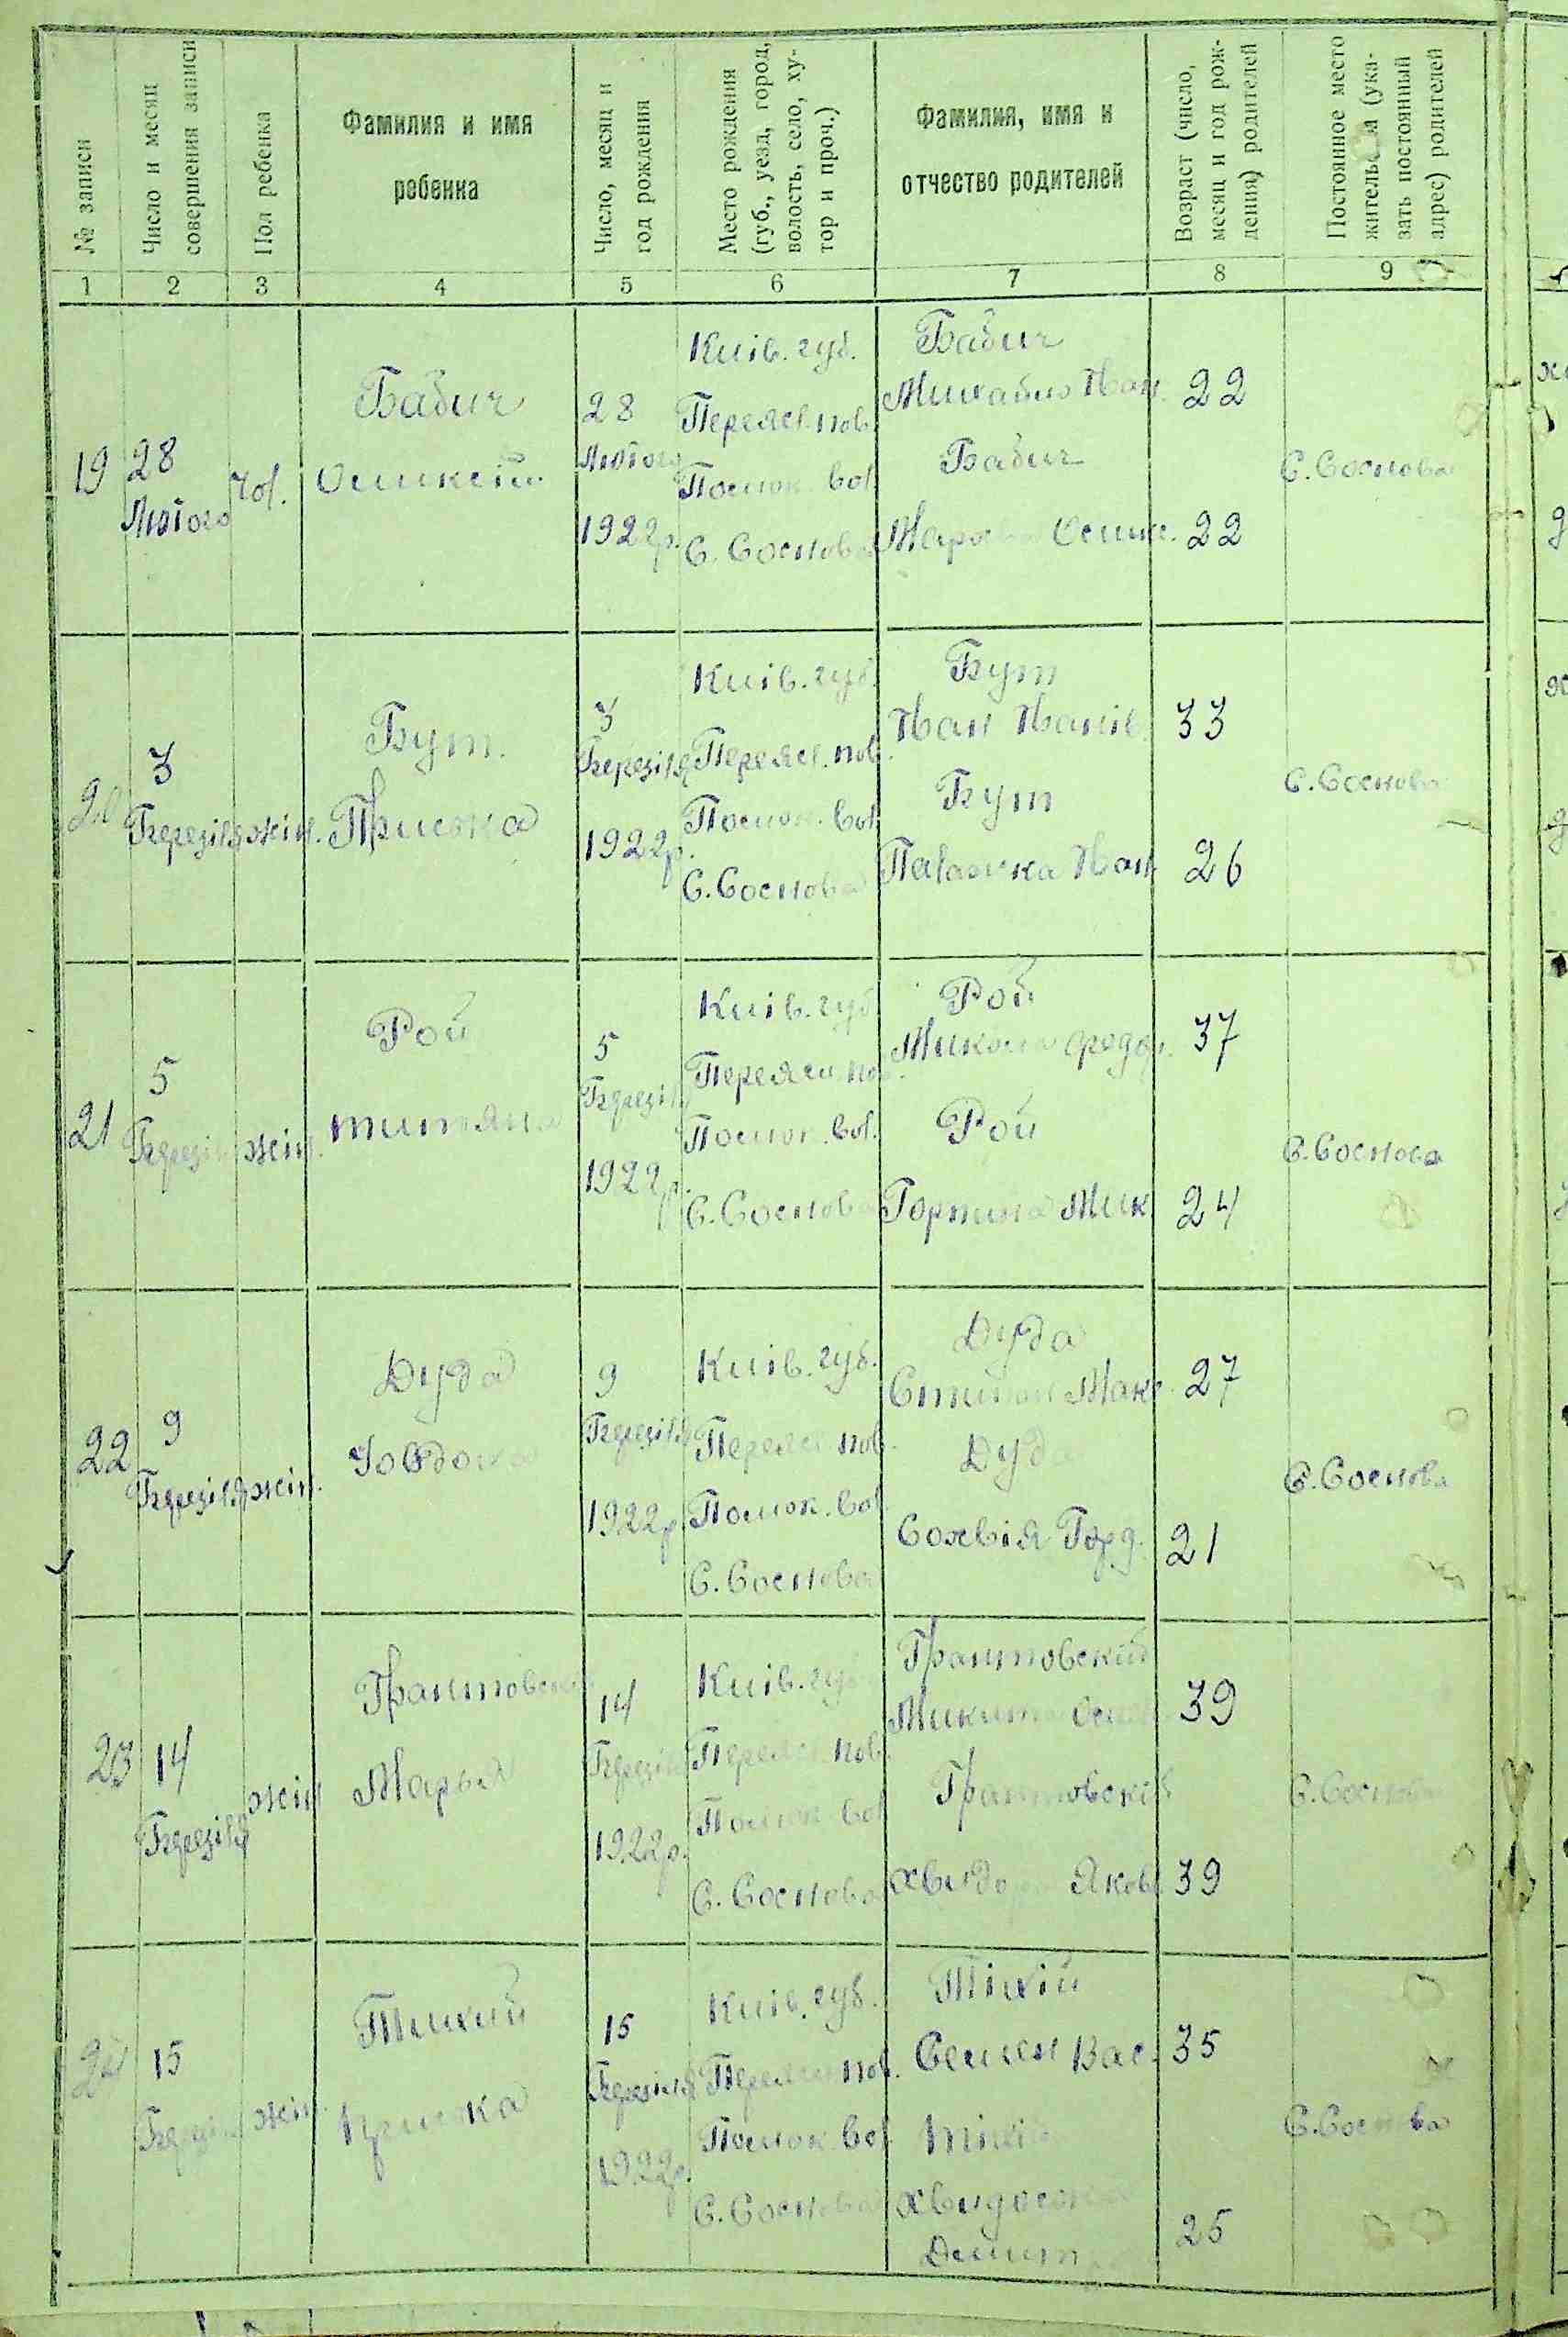 № записи
Число и месяц
совершения записи
Пол ребенка
Фамилия и имя
ребенка
Число, месяц и
год рождения
Место рождения
(губ., уезд, город,
волость, село, ху-
тор и проч.)
Фамилия, имя и
отчество родителей
Возраст (число,
месяц и год рож-
дения) родителей
Постоянное место
жительства (ука-
зать постоянный
адрес) родителей
1 2 3 4 5 6 7 8 9
19
28
Лютого
чол.
Бабич
28
Лютого
1922р.
Київ. губ.
Переясл. пов.
Помок. вол.
С. Соснова
Бабич
Михайло Іван.
22
Бабич
22
С. Соснова
20
3
Березіля
жін.
Бут.
Приська
3
Березіля
1922р.
Київ. губ.
Переясл. пов.
Помок. вол.
С. Соснова
Бут
Іван Іванів.
33
Бут
Палажка Іван.
26
С. Соснова
21
5
Березіля
жін.
Рой
титяна
5
Березіля
1922р.
Київ. губ.
Переясл. пов.
Помок. вол.
С. Соснова
Рой
Микола Федор.
37
Рой
Горпина Мик.
24
С. Соснова
22
9
Березіля
жін.
Дуда
9
Березіля
1922р.
Київ. губ.
Переясл. пов.
Помок. вол.
С. Соснова
Дуда
Макс.
27
Дуда
Сохвія Горд.
21
С. Соснова
23
14
Березіля
жін
Марья
14
Березіля
1922р.
Київ. губ.
Переясл. пов.
Помок. вол.
С. Соснова
Микита
39
Яков.
39
С. Соснова
24
15
Березіля
жін.
Тихий
15
Березіля
1922р.
Київ. губ.
Переясл. пов.
Помок. вол.
С. Соснова
Тіхій
Семен Вас.
35
Дмит
25
С. Соснова